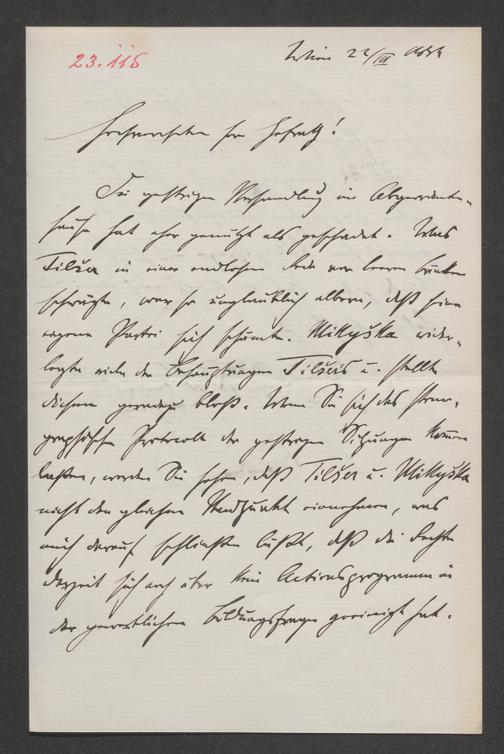 23.115
Wien 22/III 1884
Hochverehrter Herr Hofrath!
Die gestrige Verhandlung im Abgeordneten-
hause hat eher genützt als geschadet. Was
Tilšer in einer endlosen Rede vor leeren Bänken
schwätzte, war so unglaublich albern, daß seine
eigene Partei sich schämte. Mikyška wider-
legte viele der Behauptungen Tilšers u. stellte
diesen geradezu bloß. Wenn Sie sich das steno-
graphische Protocoll der gestrigen Sitzungen kommen
laßen, werden Sie sehen, daß Tilšer u. Mikyška
nicht den gleichen Standpunkt einnehmen, was
mich darauf schließen läßt, daß die Rechte
derzeit sich noch über kein Actionsprogramm in
der gewerblichen Bildungsfrage geeinigt hat.